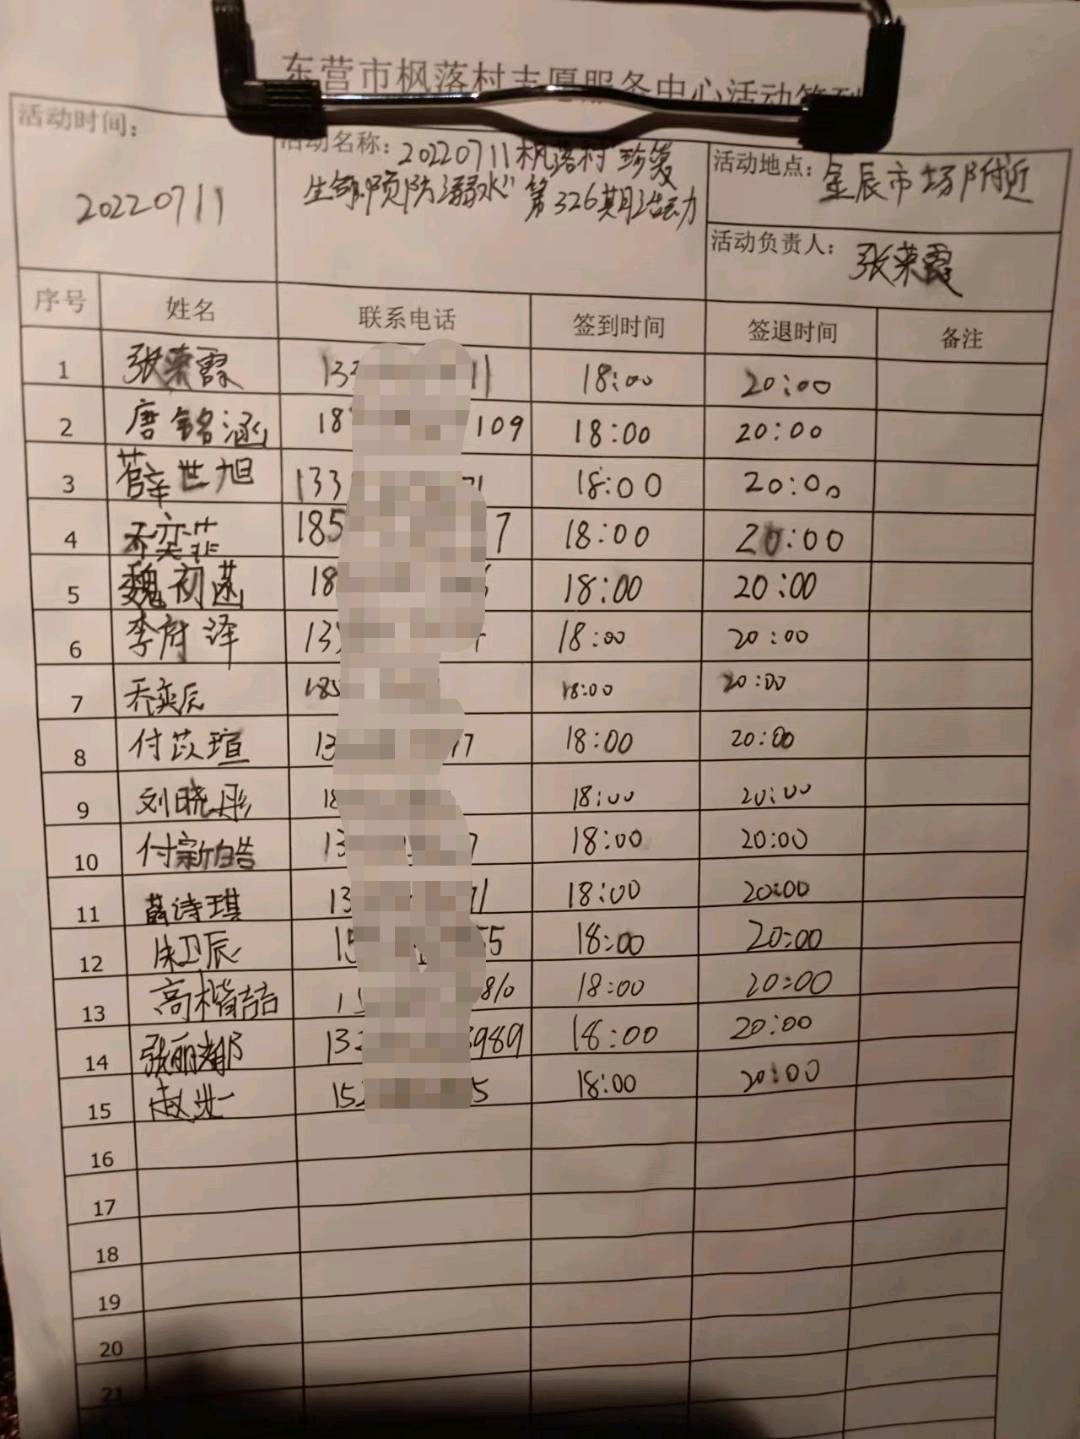 东营市枫落村志愿服务中心活动签到
活动时间: 20220711
活动名称: 20220711枫落村"珍爱
生命 预防溺水"第326期活动
活动地点: 星辰市场附近
活动负责人: 张荣霞
序号 姓名 联系电话 签到时间 签退时间 备注
1 张荣霞 13 11 18:00 20:00
2 唐铭涵 18 109 18:00 20:00
3 薛世旭 133 71 18:00 20:00
4 乔奕菲 185 7 18:00 20:00
5 魏初 18 18:00 20:00
6 李府泽 13 18:00 20:00
7 乔奕辰 185 18:00 20:00
8 付苡瑄 13 77 18:00 20:00
9 刘晓彤 18 18:00 20:00
10 付新皓 13 7 18:00 20:00
11 薛诗琪 13 71 18:00 20:00
12 卫辰 15 55 18:00 20:00
13 高楷喆 1 810 18:00 20:00
14 张丽娜 132 3989 18:00 20:00
15 赵 152 5 18:00 20:00
16
17
18
19
20
21